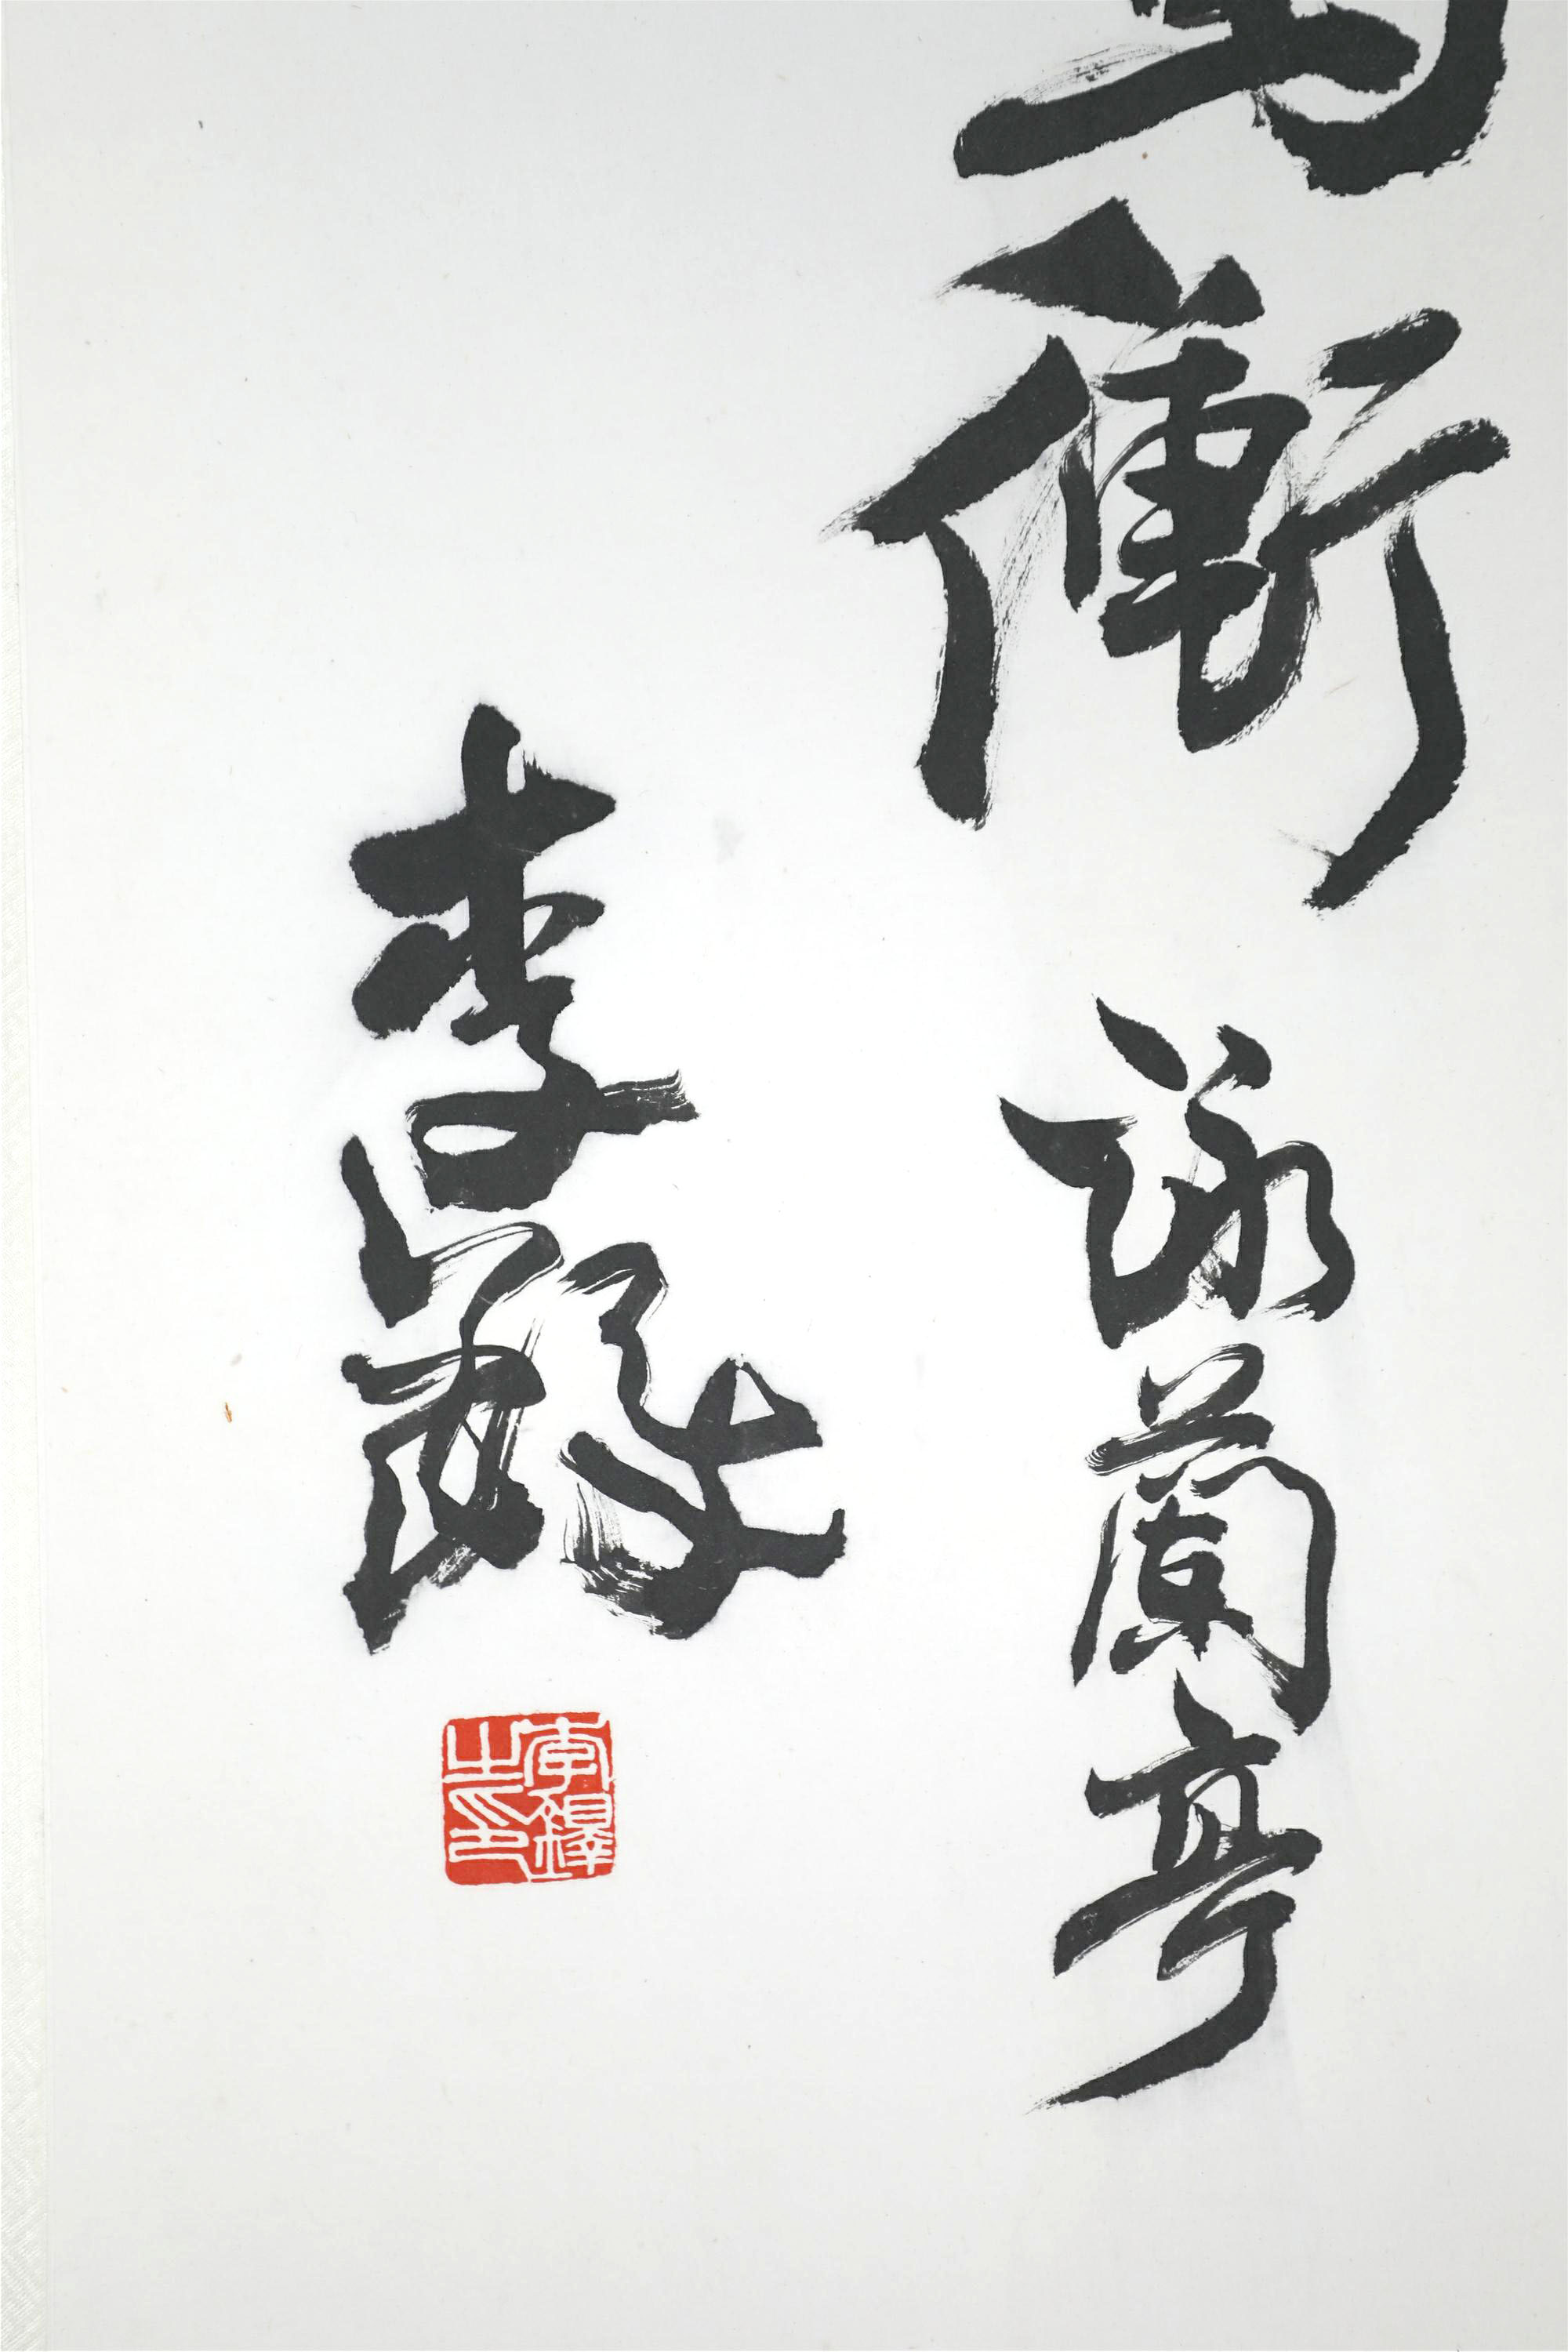 衝 詠蘭亭
李鐸
李鐸之印